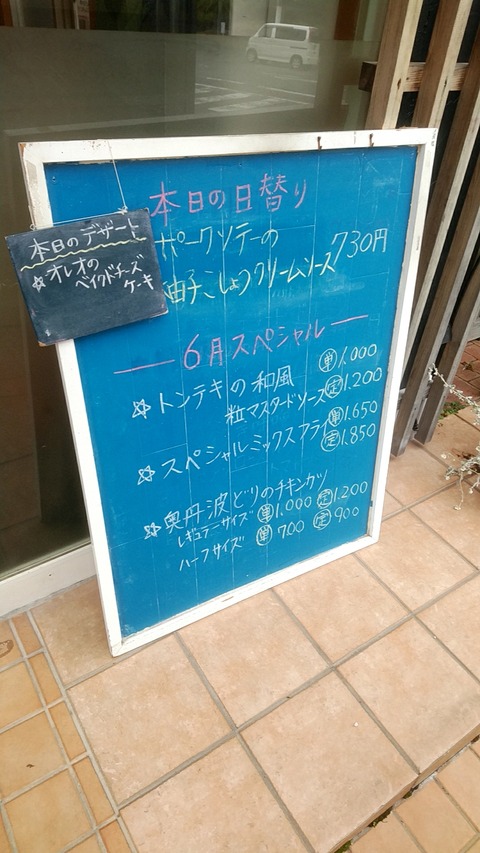 本日のデザート
☆オレオの
ベイクドチーズ
ケーキ
本日の日替り
ポークソテーの
柚子こしょうクリームソース 730円
― 6月スペシャル ―
☆トンテキの和風 単 1.000
粒マスタードソース 定 1.200
☆スペシャルミックスフライ 単 1.650
定 1.850
☆奥丹波どりのチキンカツ
レギュラーサイズ 単 1.000 定 1.200
ハーフサイズ 単 700 定 900